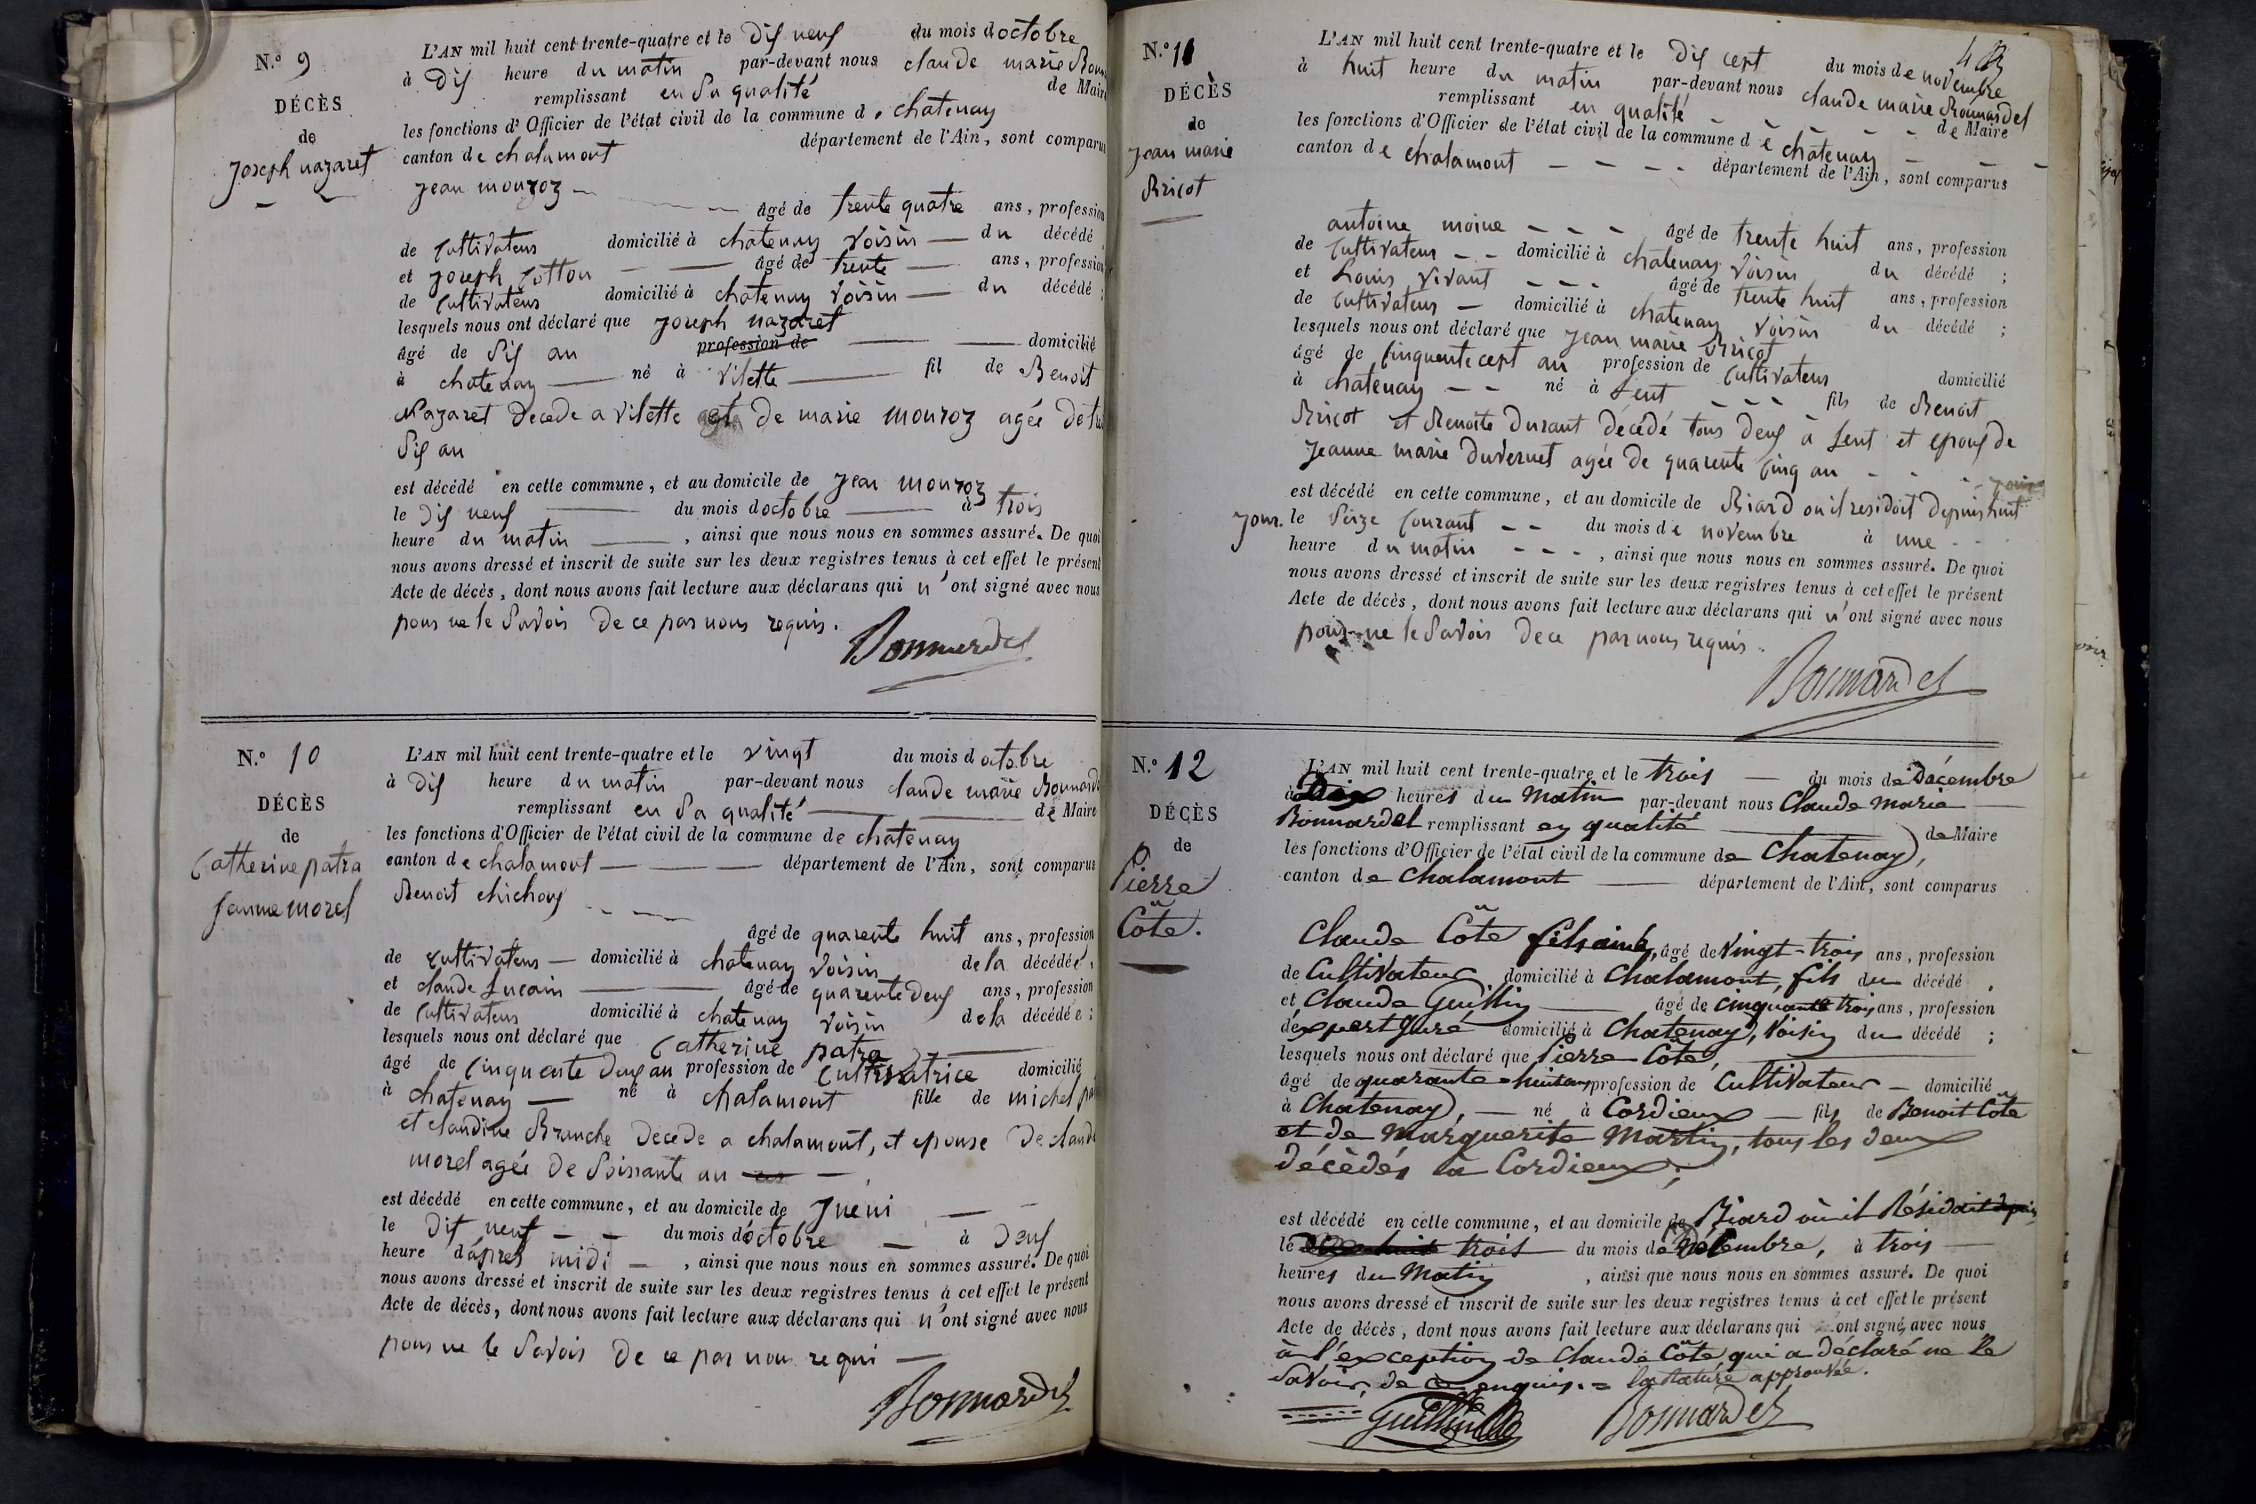 N.º 9
DÉCÈS
de
Joseph nazaret
L'AN mil huit cent trente-quatre et le Dis neuf du mois doctobre
à Dis heure du matin par-devant nous claude marie Bonn
remplissant en Sa qualité de Mair
les fonctions d'Officier de l'état civil de la commune de chatenay
canton de chalamont département de l'Ain, sont comparus
Jean mouroz
âgé de trente quatre ans, profession
de Cultivateur domicilié à chatenay voisin du décédé
et Joseph Cotton âgé de trente ans, profession
de Cultivateur domicilié à chatenay voisin du décédé ;
lesquels nous ont déclaré que Joseph nazaret
âgé de Sis an profession de domicilié
à chatenay né à vilette fil de Benoit
Nazaret Decede a vilette et de marie mouroz agée de
Sis an
est décédé en cette commune, et au domicile de Jean mouroz
le Dis neuf du mois doctobre à trois
heure du matin , ainsi que nous nous en sommes assuré. De quoi
nous avons dressé et inscrit de suite sur les deux registres tenus à cet effet le présent
Acte de décès, dont nous avons fait lecture aux déclarans qui n'ont signé avec nous
pour ne le Savoir De ce par nous requis.
Bonnardel
N.º 10
DÉCÈS
de
Catherine patra
femme morel
L'AN mil huit cent trente-quatre et le vingt du mois doctobre
à Dis heure du matin par-devant nous claude marie Bonnard
remplissant en Sa qualité de Maire
les fonctions d'Officier de l'état civil de la commune de chatenay
canton de chalamont département de l'Ain, sont comparus
Benoit chichoux
âgé de quarente huit ans, profession
de cultivateur domicilié à chatenay voisin de la décédée,
et claude Lucain âgé de quarente deus ans, profession
de Cultivateur domicilié à chatenay voisin de la décédée ;
lesquels nous ont déclaré que Catherine patra
âgé de Cinquente Deus an profession de Cultivatrice domicilié
à chatenay né à chalamont fille de michel pa
et claudine Branche Decede a chalamont, et epouse De claude
morel agée De Soissante an
est décédé en cette commune, et au domicile de Jueni
le Dis neuf du mois doctobre à Deus
heure d'apres midi , ainsi que nous nous en sommes assuré. De quoi
nous avons dressé et inscrit de suite sur les deux registres tenus à cet effet le présent
Acte de décès, dont nous avons fait lecture aux déclarans qui n'ont signé avec nous
pour ne le Savoir De ce par nous requi
Bonnardel
N.º 11
DÉCÈS
de
Jean marie
Bricot
L'AN mil huit cent trente-quatre et le Dis cept du mois de novembre
à huit heure du matin par-devant nous claude marie Bonnardel
remplissant en qualité de Maire
les fonctions d'Officier de l'état civil de la commune de chatenay
canton de chalamont département de l'Ain, sont comparus
antoine moine âgé de trente huit ans, profession
de Cultivateur domicilié à chatenay voisin du décédé ;
et Louis vivant âgé de trente huit ans, profession
de Cultivateur domicilié à chatenay voisin du décédé ;
lesquels nous ont déclaré que Jean marie Bricot
âgé de Cinquente cept an profession de Cultivateur domicilié
à chatenay né à Sent fils de Benoit
Bricot et Benoite Durant décédé tous deus à Sent et epous de
Jeanne marie Duvernet agée de quarente Cinq an
est décédé en cette commune, et au domicile de Biard ou il residoit Depuis huit
Jour. le Seize Courant du mois de novembre à une
heure du matin , ainsi que nous nous en sommes assuré. De quoi
nous avons dressé et inscrit de suite sur les deux registres tenus à cet effet le présent
Acte de décès, dont nous avons fait lecture aux déclarans qui n'ont signé avec nous
pour ne le Savoir De ce par nous requis.
Bonnardel
N.º 12
DÉCÈS
de
Pierre
Côte.
L'AN mil huit cent trente-quatre et le trois du mois de Décembre
à Dix heures du Matin par-devant nous Claude Marie
Bonnardel remplissant en qualité de Maire
les fonctions d'Officier de l'état civil de la commune de Chatenay,
canton de Chalamont département de l'Ain, sont comparus
Claude Côte fils ainé, âgé de Vingt-trois ans, profession
de Cultivateur domicilié à Chalamont, fils du décédé,
et Claude Guillin âgé de cinquante trois ans, profession
d'expert Juré domicilié à Chatenay, Voisin du décédé ;
lesquels nous ont déclaré que Pierre Côte,
âgé de quarante-huit ans profession de Cultivateur domicilié
à Chatenay, né à Cordieux fils de Benoit Côte
et de Marguerite Martin, tous les deux
décédés à Cordieux,
est décédé en cette commune, et au domicile de Biard où il Résidait depuis
le trois du mois de Décembre, à trois
heures du Matin , ainsi que nous nous en sommes assuré. De quoi
nous avons dressé et inscrit de suite sur les deux registres tenus à cet effet le présent
Acte de décès, dont nous avons fait lecture aux déclarans qui ont signé, avec nous
à l'exception de Claude Côte qui a déclaré ne le
Savoir, de ce enquis. = la rature approuvée.
Guillin
Bonnardel